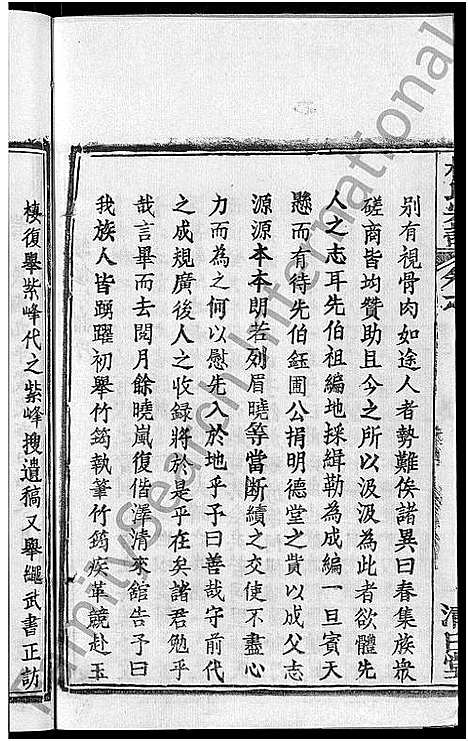 別有視骨肉如途人者勢難俟諸異日春集族眾
磋商皆均贊助且今之所以汲汲為此者欲體先
人之志耳先伯祖編地採緝勒為成編一旦賓天
懸而有待先伯鈺圃公捐明德堂之貲以成父志
源源本本朗若列眉曉等當斷續之交使不盡心
力而為之何以慰先人於地乎予曰善哉守前代
之成規廣後人之收録將於是乎在矣諸君勉乎
哉言畢而去閲月餘曉嵐復偕澤清來舘告予曰
我族人皆踴躍初舉竹筠執筆竹筠疾革競赴玉
樓復舉紫峰代之紫峰搜遺稿又舉繩武書正訪
FamilySearch International